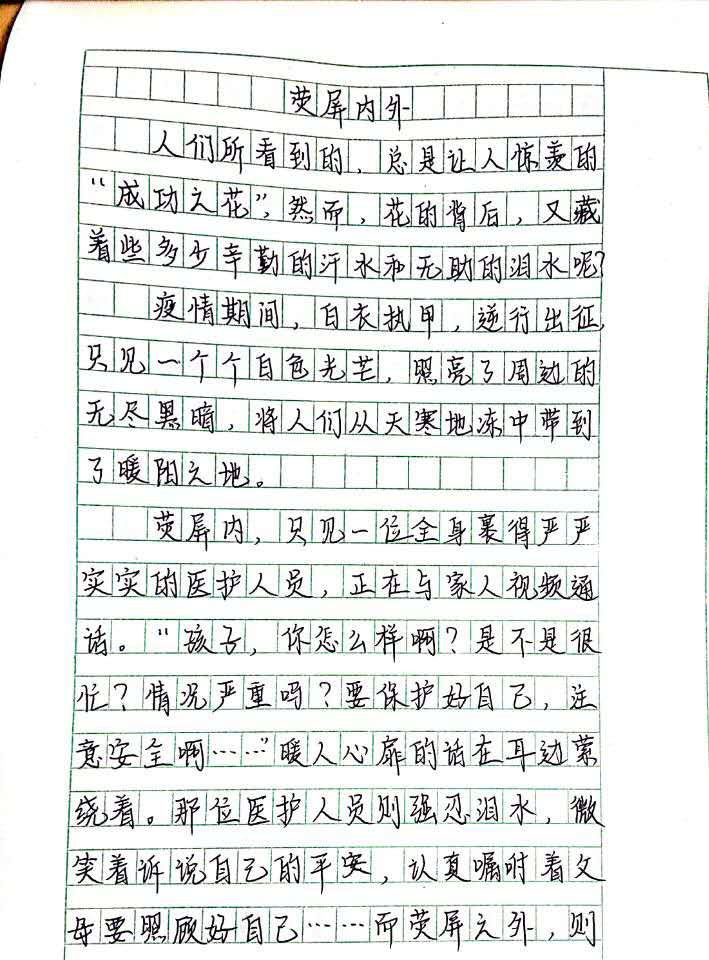 荧屏内外
人们所看到的，总是让人惊羡的
“成功之花”，然而，花的背后，又藏
着些多少辛勤的汗水和无助的泪水呢？
疫情期间，白衣执甲，逆行出征，
只见一个个白色光芒，照亮了周边的
无尽黑暗，将人们从天寒地冻中带到
了暖阳之地。
荧屏内，只见一位全身裹得严严
实实的医护人员，正在与家人视频通
话。“孩子，你怎么样啊？是不是很
忙？情况严重吗？要保护好自己，注
意安全啊……”暖人心扉的话在耳边萦
绕着。那位医护人员则强忍泪水，微
笑着诉说自己的平安，认真嘱咐着父
母要照顾好自己……而荧屏之外，则